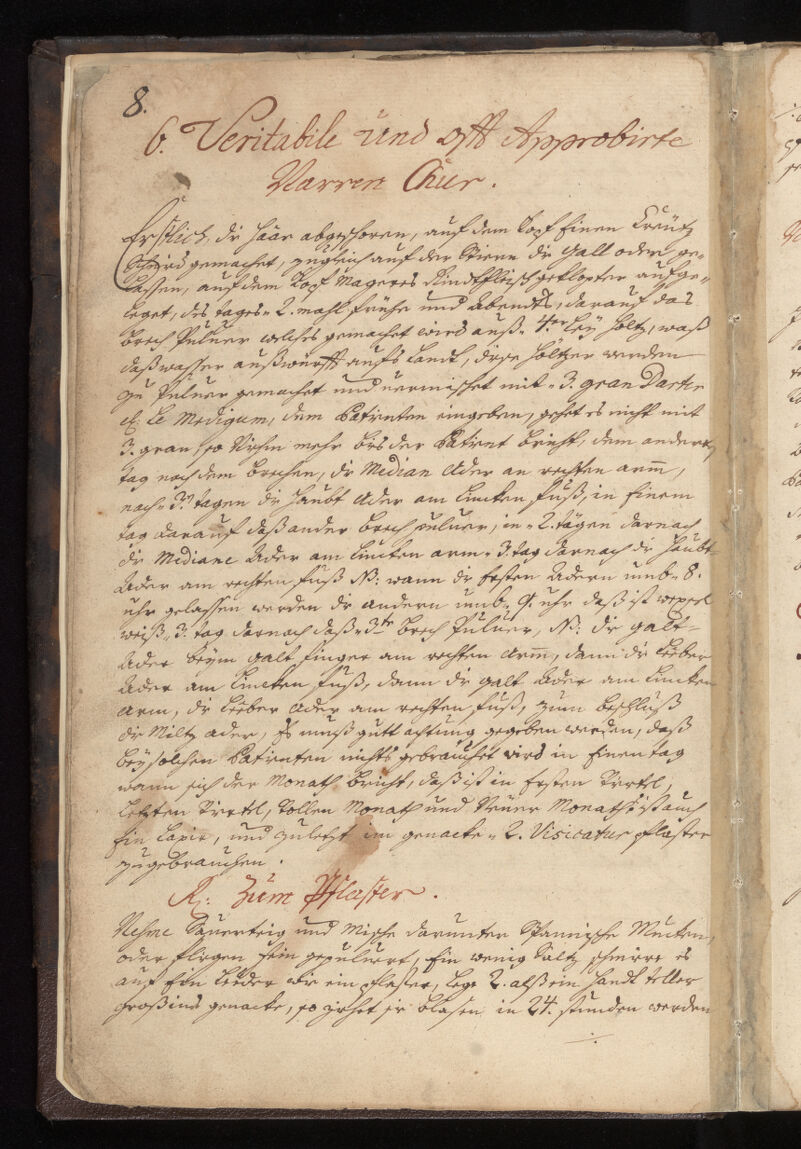 8.
6. Veritabile und oft Approbirte
Narren Chur.
Erstlich, die Haar abgeschoren, auf dem Kopf Einen Creütz
gemacht, zugleich auf der Stirn die Gall oder ge-
auf dem Kopf Mageres Rindtfleisch geklopter aufge-
leget, des tages 2. mahl frühe und Abendts, darauf das
brech Pulver welches gemacht wird auß 4er leÿ Holtz, waß
daß wasser außwürfft aufs Landt, diese Höltzer werden
zu Pulver gemachet und vermischet mit 3. gran
dem Patienten eingeben, gehet es nicht mit
3. gran, so mehr bis der Patient bricht, dem andern
tag nach dem brechen, die Median Ader am rechten arm,
nach 3. tagen die Haubt Ader am Lincken fuß, in Einem
tag darauf daß ander brech pulver, in 2. tägen darnach
die Mediane Ader am Lincken arm 3. tag darnach die Haubt-
Ader am rechten fuß NB: wann die Ersten Adern umb 8.
uhr gelassen werden die andern umb 9. uhr daß ist
weiß, 3. tag darnach daß 3te brech Pulver, NB: die galt-
Ader beÿm galt finger am rechten Arm, dann die Leeber
Ader am Lincken fuß, dann die galt Ader am Lincken
Arm, die Leeber Ader am rechten fuß, zum beschluß
die Miltz ader, Es muß gutt achtung gegeben werden, daß
beÿ solchen Patienten nichts gebrauchet wird in Einen tag
wann sich der Monath bricht, daß ist in Ersten Viertel,
Letzten Viertel, Vollen Monath und Neuen Monath ist auch
Ein und zuletzt im genacke 2. Visicatur pflaster
zugebrauchen.
R: Zum Pflaster.
Nehme Sauerteig und Mische darunter Spannische Mucken,
oder fliegen fein gepulvert, Ein wenig Saltz, schmirre es
auf Ein Leeder wie ein pflaster, lege 2. alß ein Handt teller
groß ins genacke, so ziehet sie blasen in 24. stunden werden